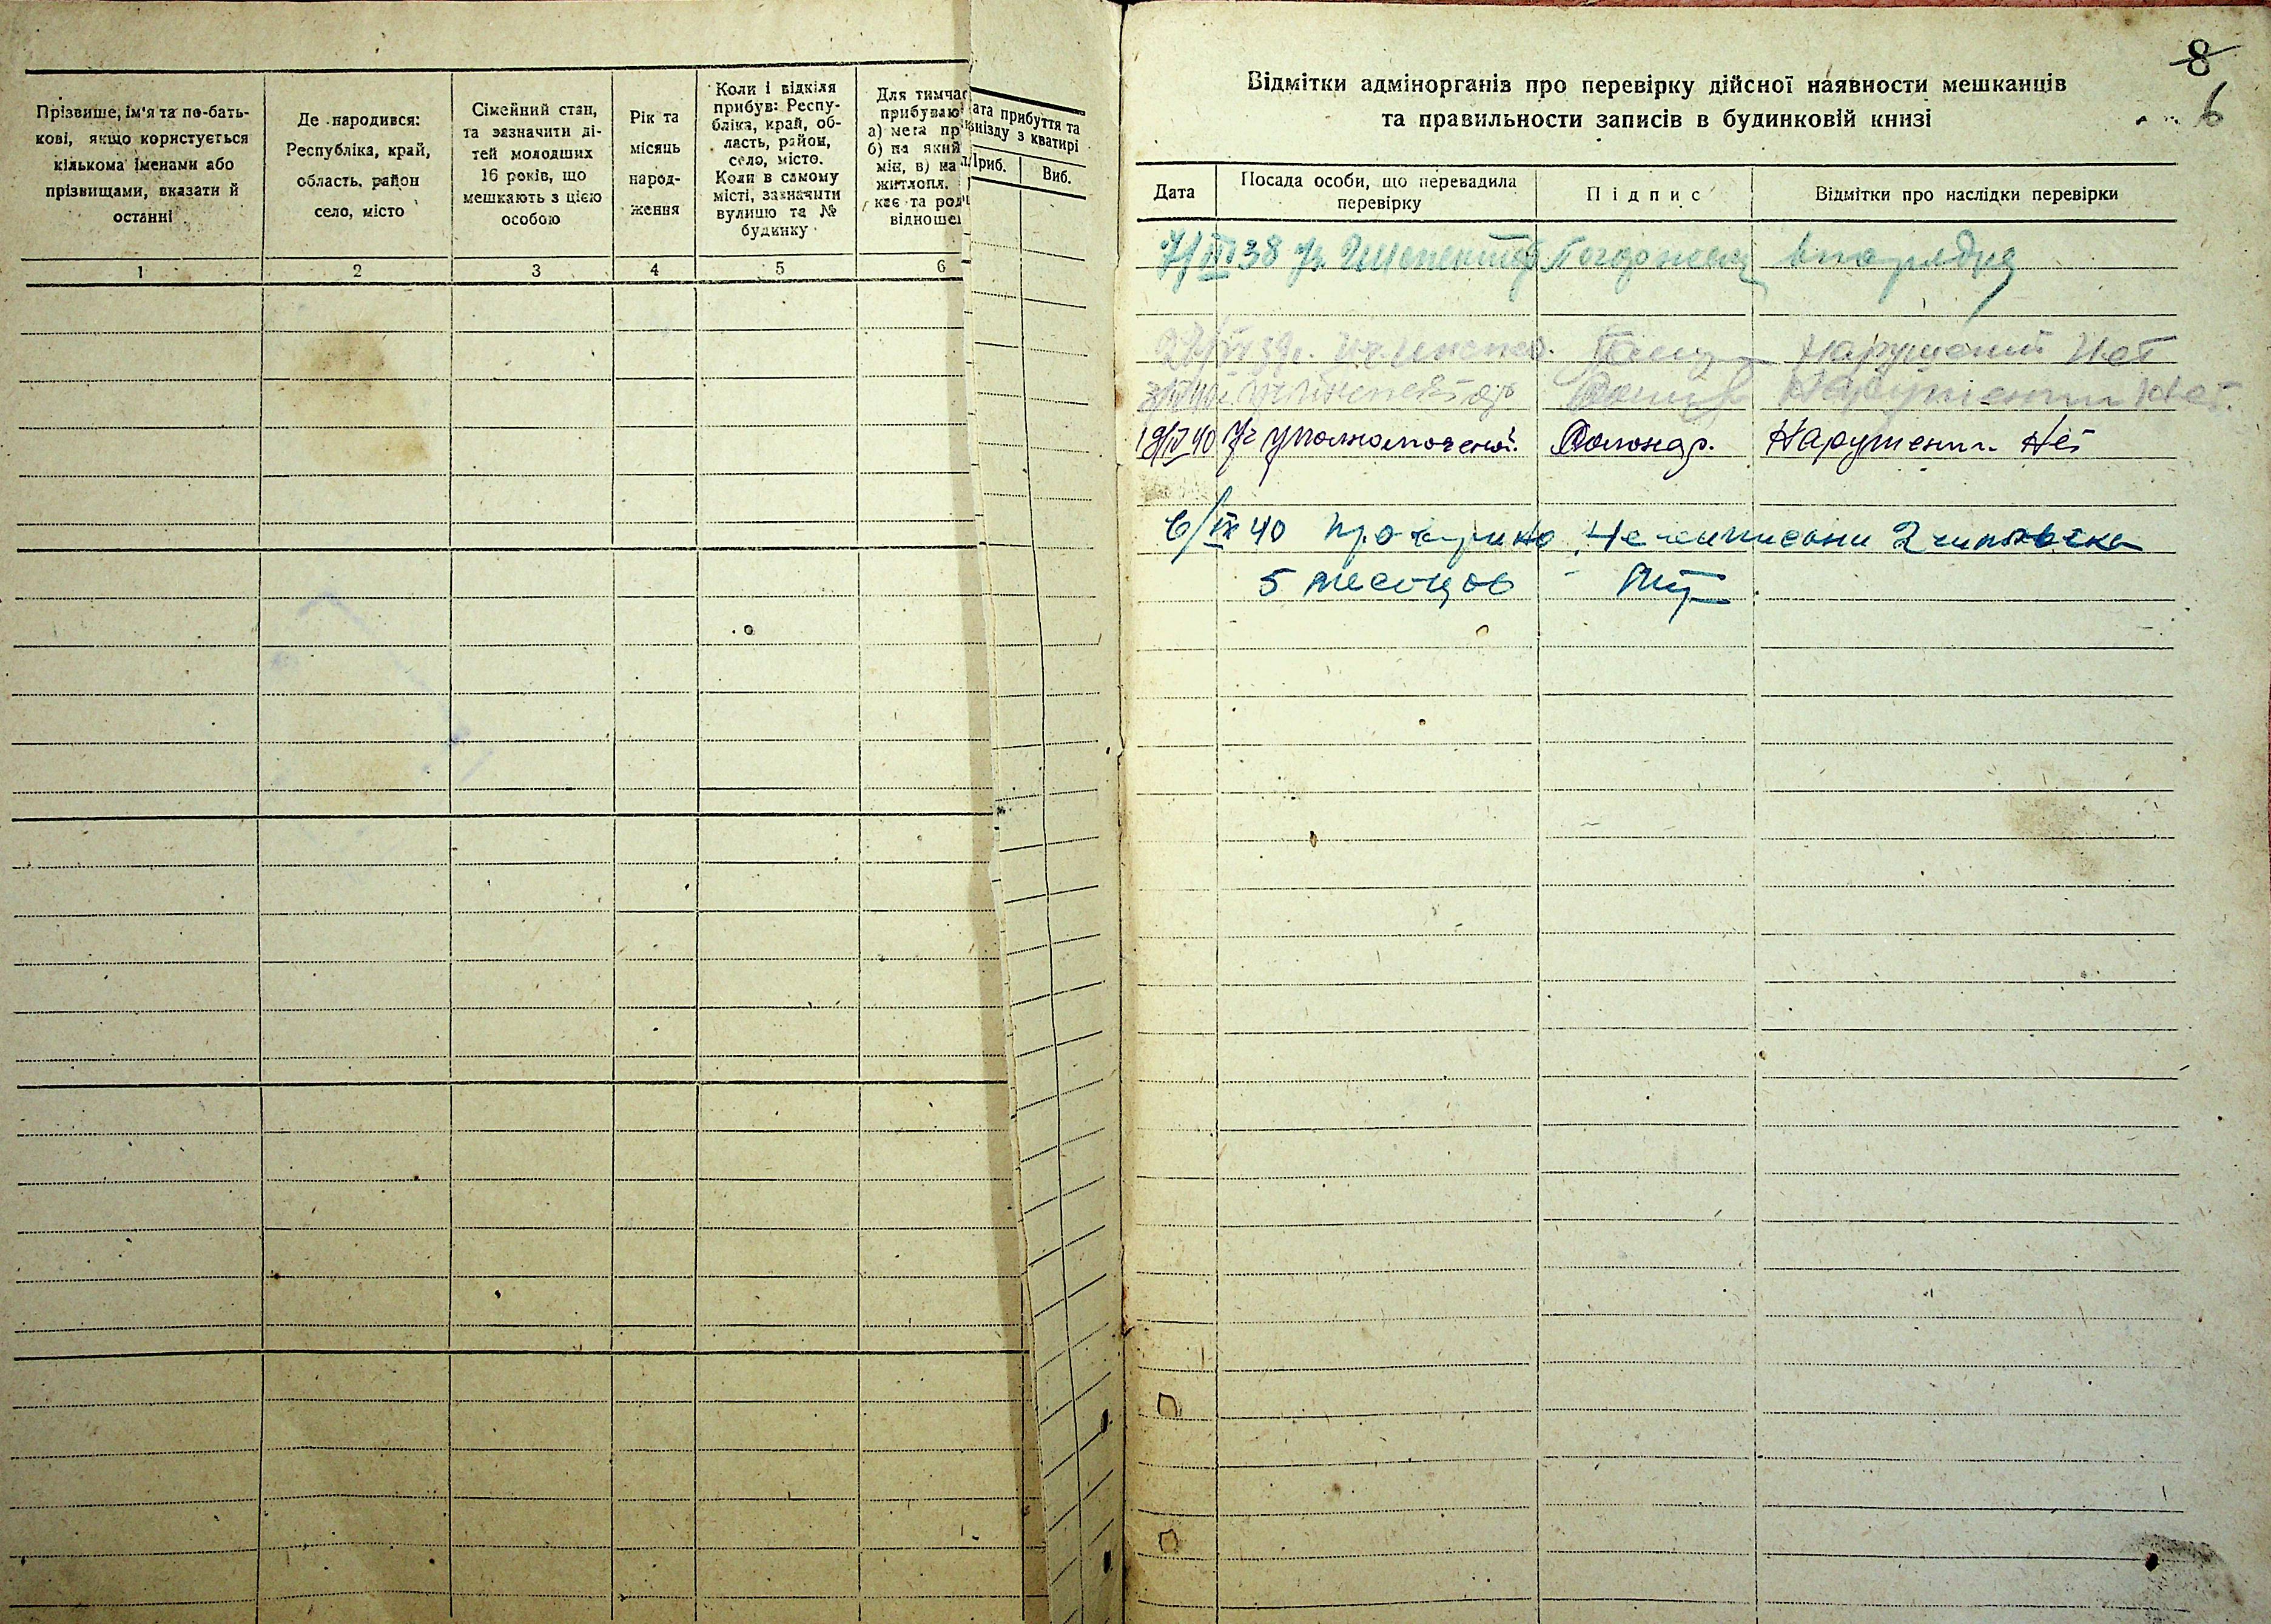 Прізвище, ім'я та по-бать-
кові, якщо користується
кількома іменами або
прізвищами, вказати й
останні
Де народився:
Республіка, край,
область, район
село, місто
Сімейний стан,
та зазначити ді-
тей молодших
16 років, що
мешкають з цією
особою
Рік та
місяць
народ-
ження
Коли і відкіля
прибув: Респу-
бліка, край, об-
ласть, район,
село, місто.
Коли в самому
місті, зазначити
вулицю та №
будинку
Для тимчас
прибуваю
а) мета пр
б) на який
мін, в) на
житлопл.
кає та род
відноше
1 2 3 4 5 6
ата прибуття та
виїзду з кватирі
Приб. Виб.
8
6
Відмітки адмінорганів про перевірку дійсної наявности мешканців
та правильности записів в будинковій книзі
Дата
Посада особи, що перевадила
перевірку
Підпис
Відмітки про наслідки перевірки
38 Уч. Инспектор впорядку
39г. Уч. инспек. Нарушений Нет
Уч Инспектор Нарушении Нет.
19/IV 40 Уч уполномоченой. Нарушении Нет
6/IX 40 2 человека
5 месецов